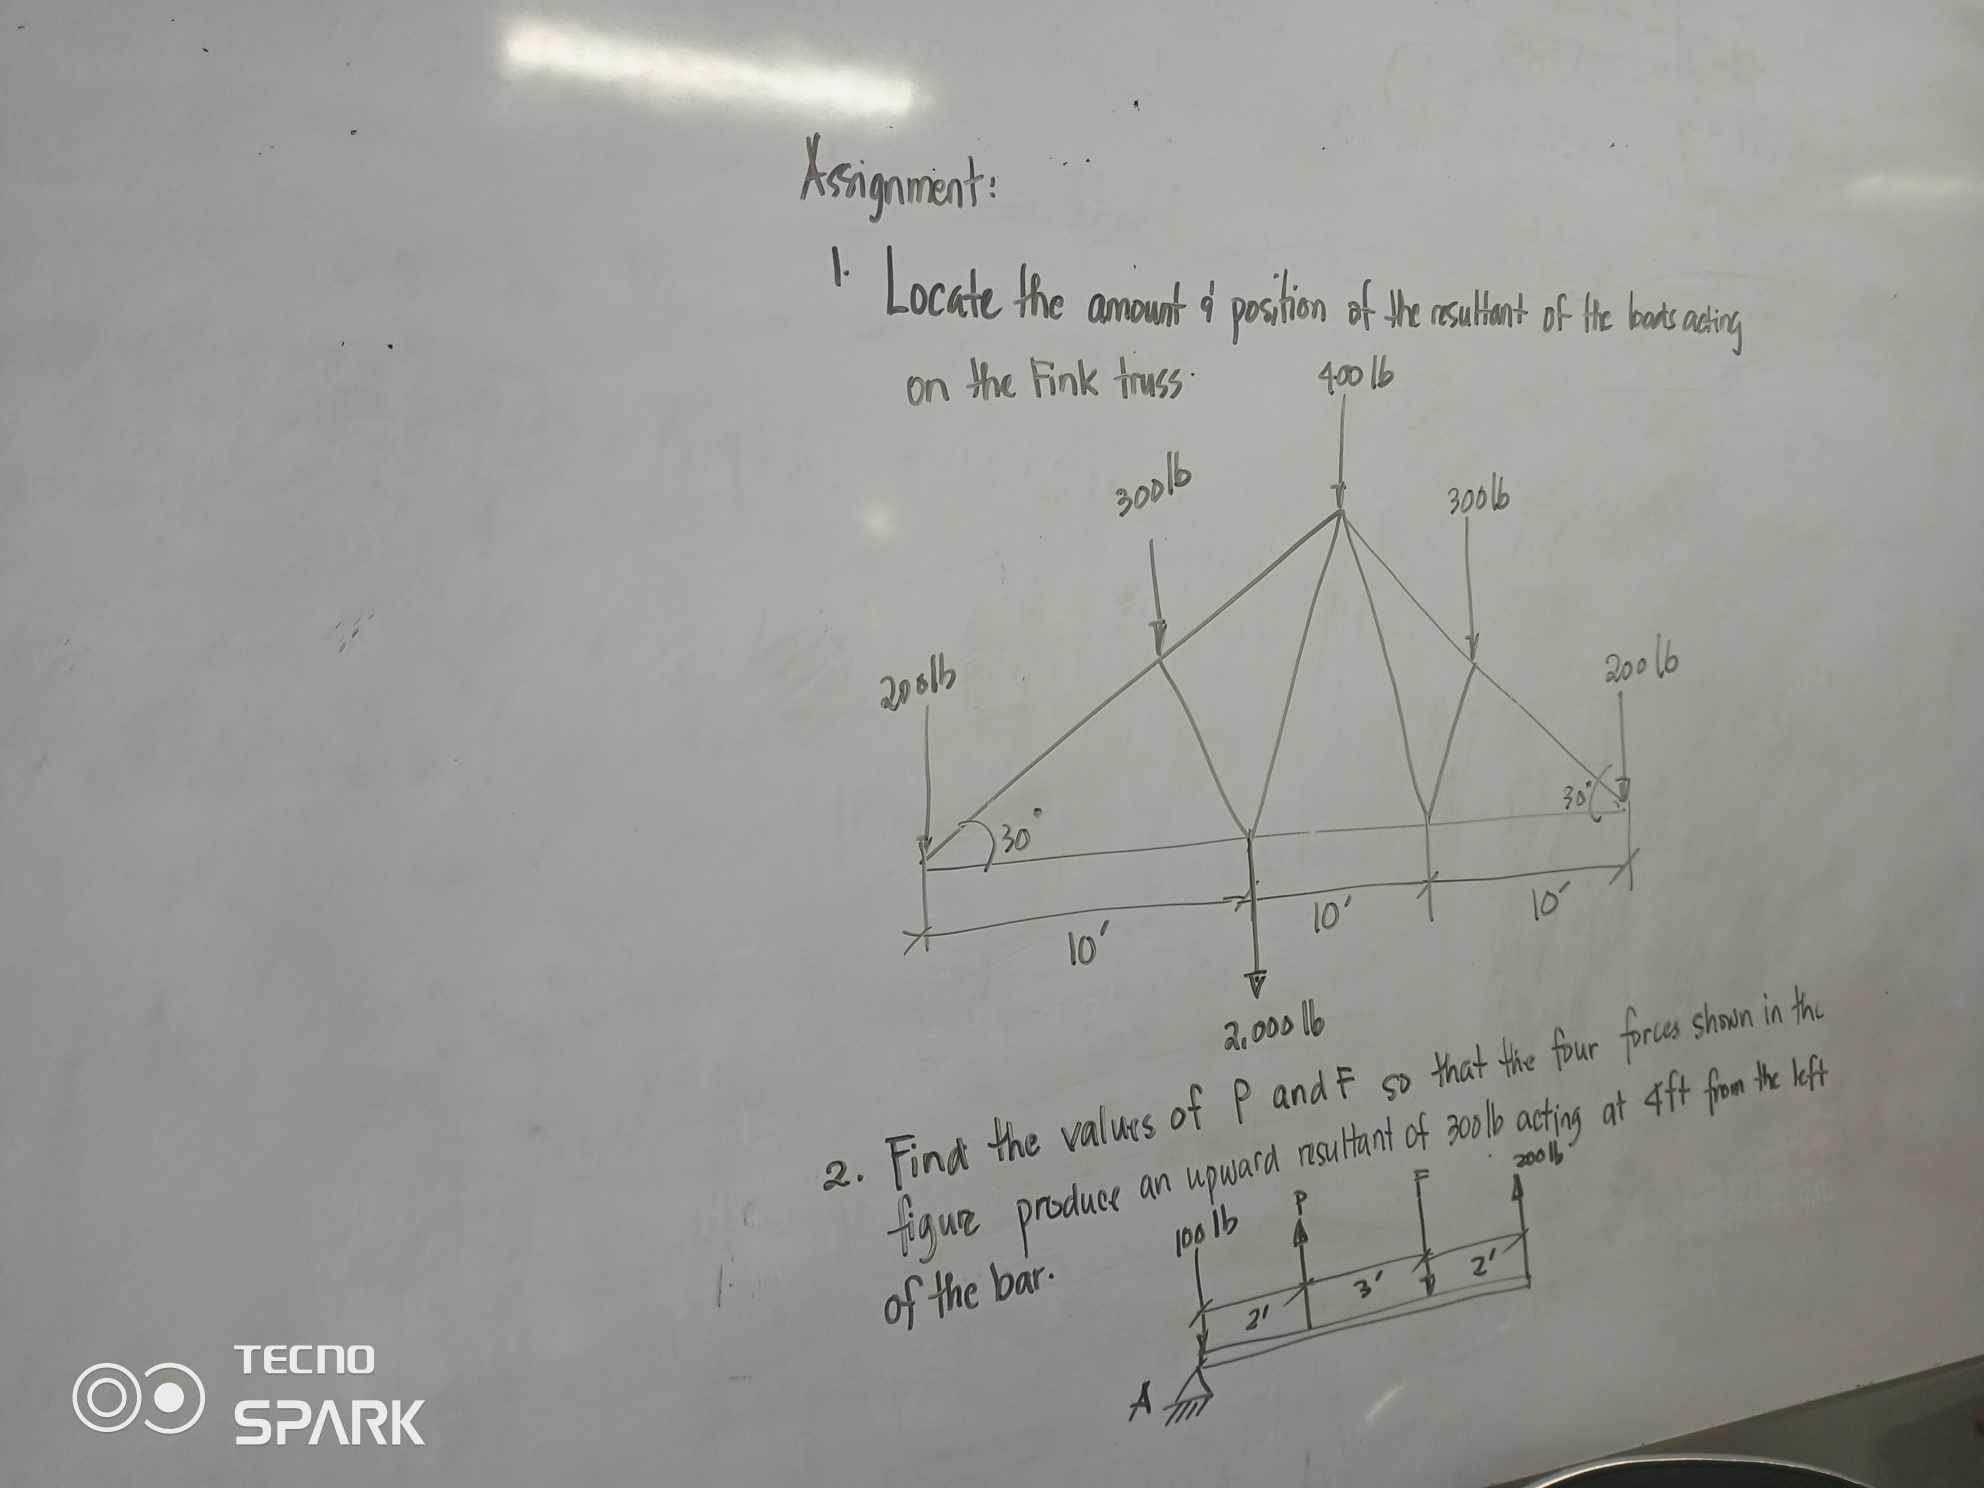 Assignment:
1. Locate the amount & position of the resultant of the loads acting
on the Fink truss.
400 lb
300 lb
300 lb
200 lb
200 lb
30°
30°
10'
10'
10'
2,000 lb
2. Find the values of P and F so that the four forces shown in the
figure produce an upward resultant of 300 lb acting at 4ft from the left
of the bar.
100 lb
P
F
200 lb
2'
3'
2'
A
TECNO
SPARK